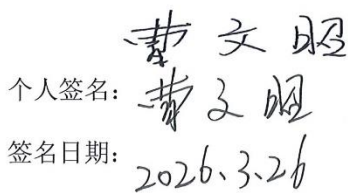 曹文昭
个人签名：曹文昭
签名日期：2026.3.26